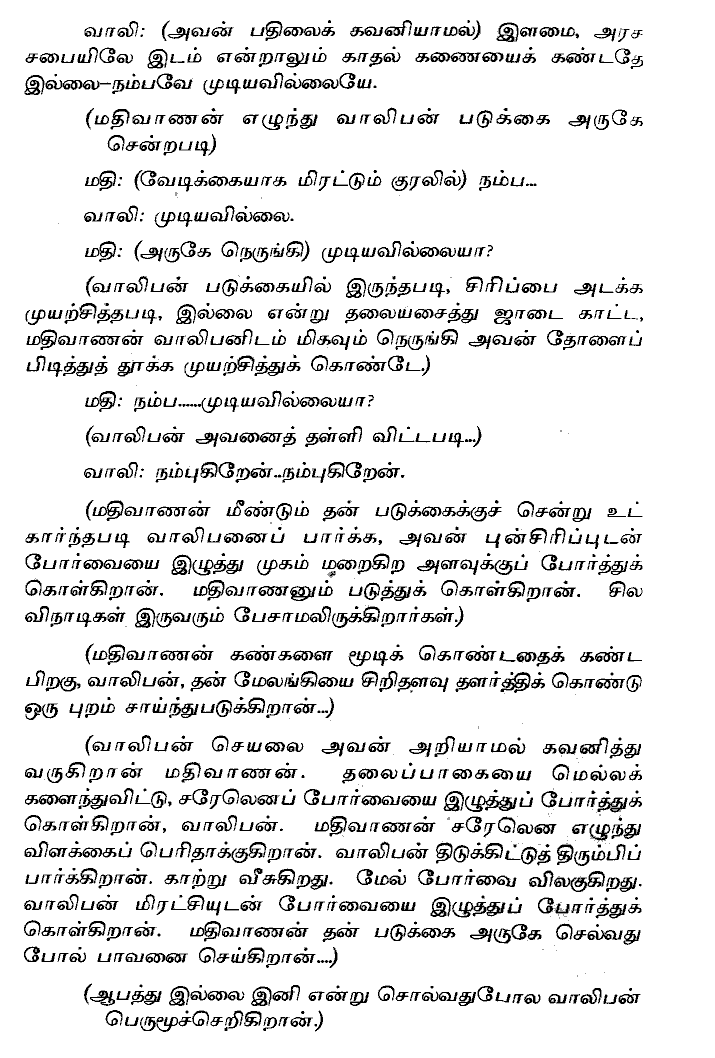 வாலி: (அவன் பதிலைக் கவனியாமல்) இளமை, அரச
சபையிலே இடம் என்றாலும் காதல் கணையைக் கண்டதே
இல்லை—நம்பவே முடியவில்லையே.
(மதிவாணன் எழுந்து வாலிபன் படுக்கை அருகே
சென்றபடி)
மதி: (வேடிக்கையாக மிரட்டும் குரலில்) நம்ப...
வாலி: முடியவில்லை.
மதி: (அருகே நெருங்கி) முடியவில்லையா?
(வாலிபன் படுக்கையில் இருந்தபடி, சிரிப்பை அடக்க
முயற்சித்தபடி, இல்லை என்று தலையசைத்து ஜாடை காட்ட,
மதிவாணன் வாலிபனிடம் மிகவும் நெருங்கி அவன் தோளைப்
பிடித்துத் தூக்க முயற்சித்துக் கொண்டே.)
மதி: நம்ப......முடியவில்லையா?
(வாலிபன் அவனைத் தள்ளி விட்டபடி...)
வாலி: நம்புகிறேன்..நம்புகிறேன்.
(மதிவாணன் மீண்டும் தன் படுக்கைக்குச் சென்று உட்
கார்ந்தபடி வாலிபனைப் பார்க்க, அவன் புன்சிரிப்புடன்
போர்வையை இழுத்து முகம் மறைகிற அளவுக்குப் போர்த்துக்
கொள்கிறான். மதிவாணனும் படுத்துக் கொள்கிறான். சில
விநாடிகள் இருவரும் பேசாமலிருக்கிறார்கள்.)
(மதிவாணன் கண்களை மூடிக் கொண்டதைக் கண்ட
பிறகு, வாலிபன், தன் மேலங்கியை சிறிதளவு தளர்த்திக் கொண்டு
ஒரு புறம் சாய்ந்துபடுக்கிறான்...)
(வாலிபன் செயலை அவன் அறியாமல் கவனித்து
வருகிறான் மதிவாணன். தலைப்பாகையை மெல்லக்
களைந்துவிட்டு, சரேலெனப் போர்வையை இழுத்துப் போர்த்துக்
கொள்கிறான், வாலிபன். மதிவாணன் சரேலென எழுந்து
விளக்கைப் பெரிதாக்குகிறான். வாலிபன் திடுக்கிட்டுத் திரும்பிப்
பார்க்கிறான். காற்று வீசுகிறது. மேல் போர்வை விலகுகிறது.
வாலிபன் மிரட்சியுடன் போர்வையை இழுத்துப் போர்த்துக்
கொள்கிறான். மதிவாணன் தன் படுக்கை அருகே செல்வது
போல் பாவனை செய்கிறான்....)
(ஆபத்து இல்லை இனி என்று சொல்வதுபோல வாலிபன்
பெருமூச்செறிகிறான்.)